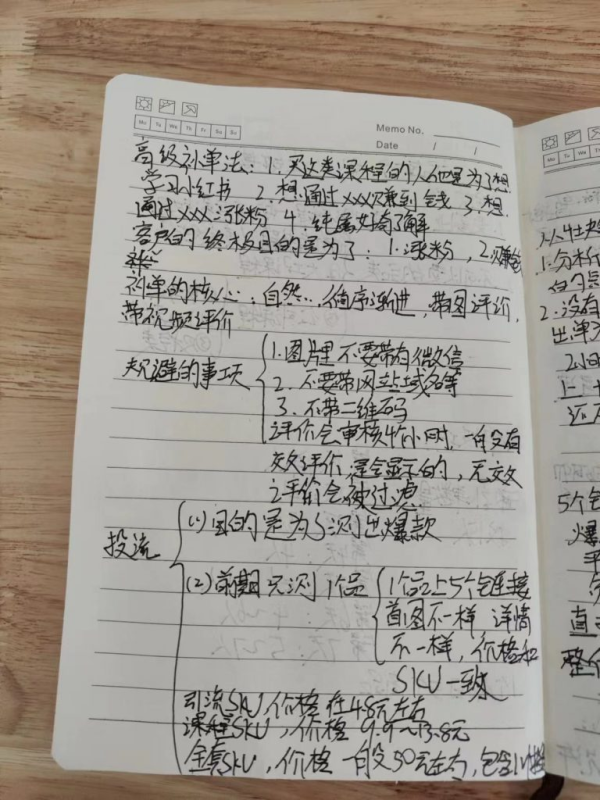 Mo Tu We Th Fr Sa Su
Memo No.
Date / /
高级补单法：1. 买这类课程的人他是为了想
学习小红书 2. 想通过xxx赚到钱 3. 想
通过xxx涨粉 4. 纯属好奇了解
客户的终极目的是为了：1. 涨粉，2. 赚钱
补单的核心：自然…循序渐进，带图评价，
带视频评价
规避的事项
1. 图片里不要带有微信
2. 不要带网站域名等
3. 不带二维码
评价会审核4个小时，一般没有
效评价，是会显示的，无效
评价会被过滤
投流
(1) 目的是为了测出爆款
(2) 前期只测1个品
1个品上5个链接
首图不一样 详情
不一样，价格和
SKU一致
引流SKU，价格在4.8元左右
课程SKU，价格 9.9～13.8元
全套SKU，价格 一般30元左右，包含1V1
从
1. 分析
的
2. 没有
出单
2小时
上
还
5个
爆
直
整个